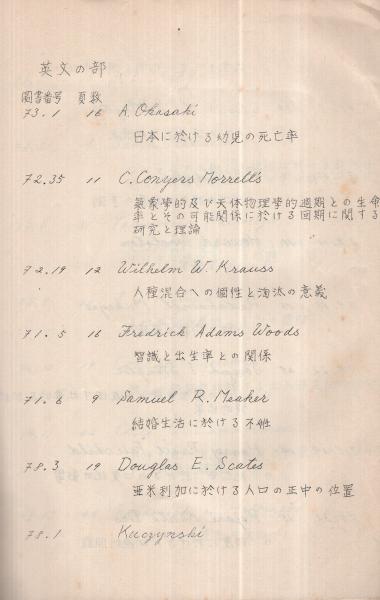 英文の部
圖書番号 頁数
73.1 16 A. Okasaki
日本に於ける幼児の死亡率
72.35 11 C. Conyers Morrell's
氣象學的及び天体物理學的週期との生命
率とその可能関係に於ける回期に関する
研究と理論
72.19 12 Wilhelm W. Krauss
人種混合への個性と淘汰の意義
71.5 16 Fredrick Adams Woods
智識と出生率との関係
71.6 9 Samuel R. Meaker
結婚生活に於ける不姙
78.3 19 Douglas E. Scates
亜米利加に於ける人口の正中の位置
78.1 Kuczynski